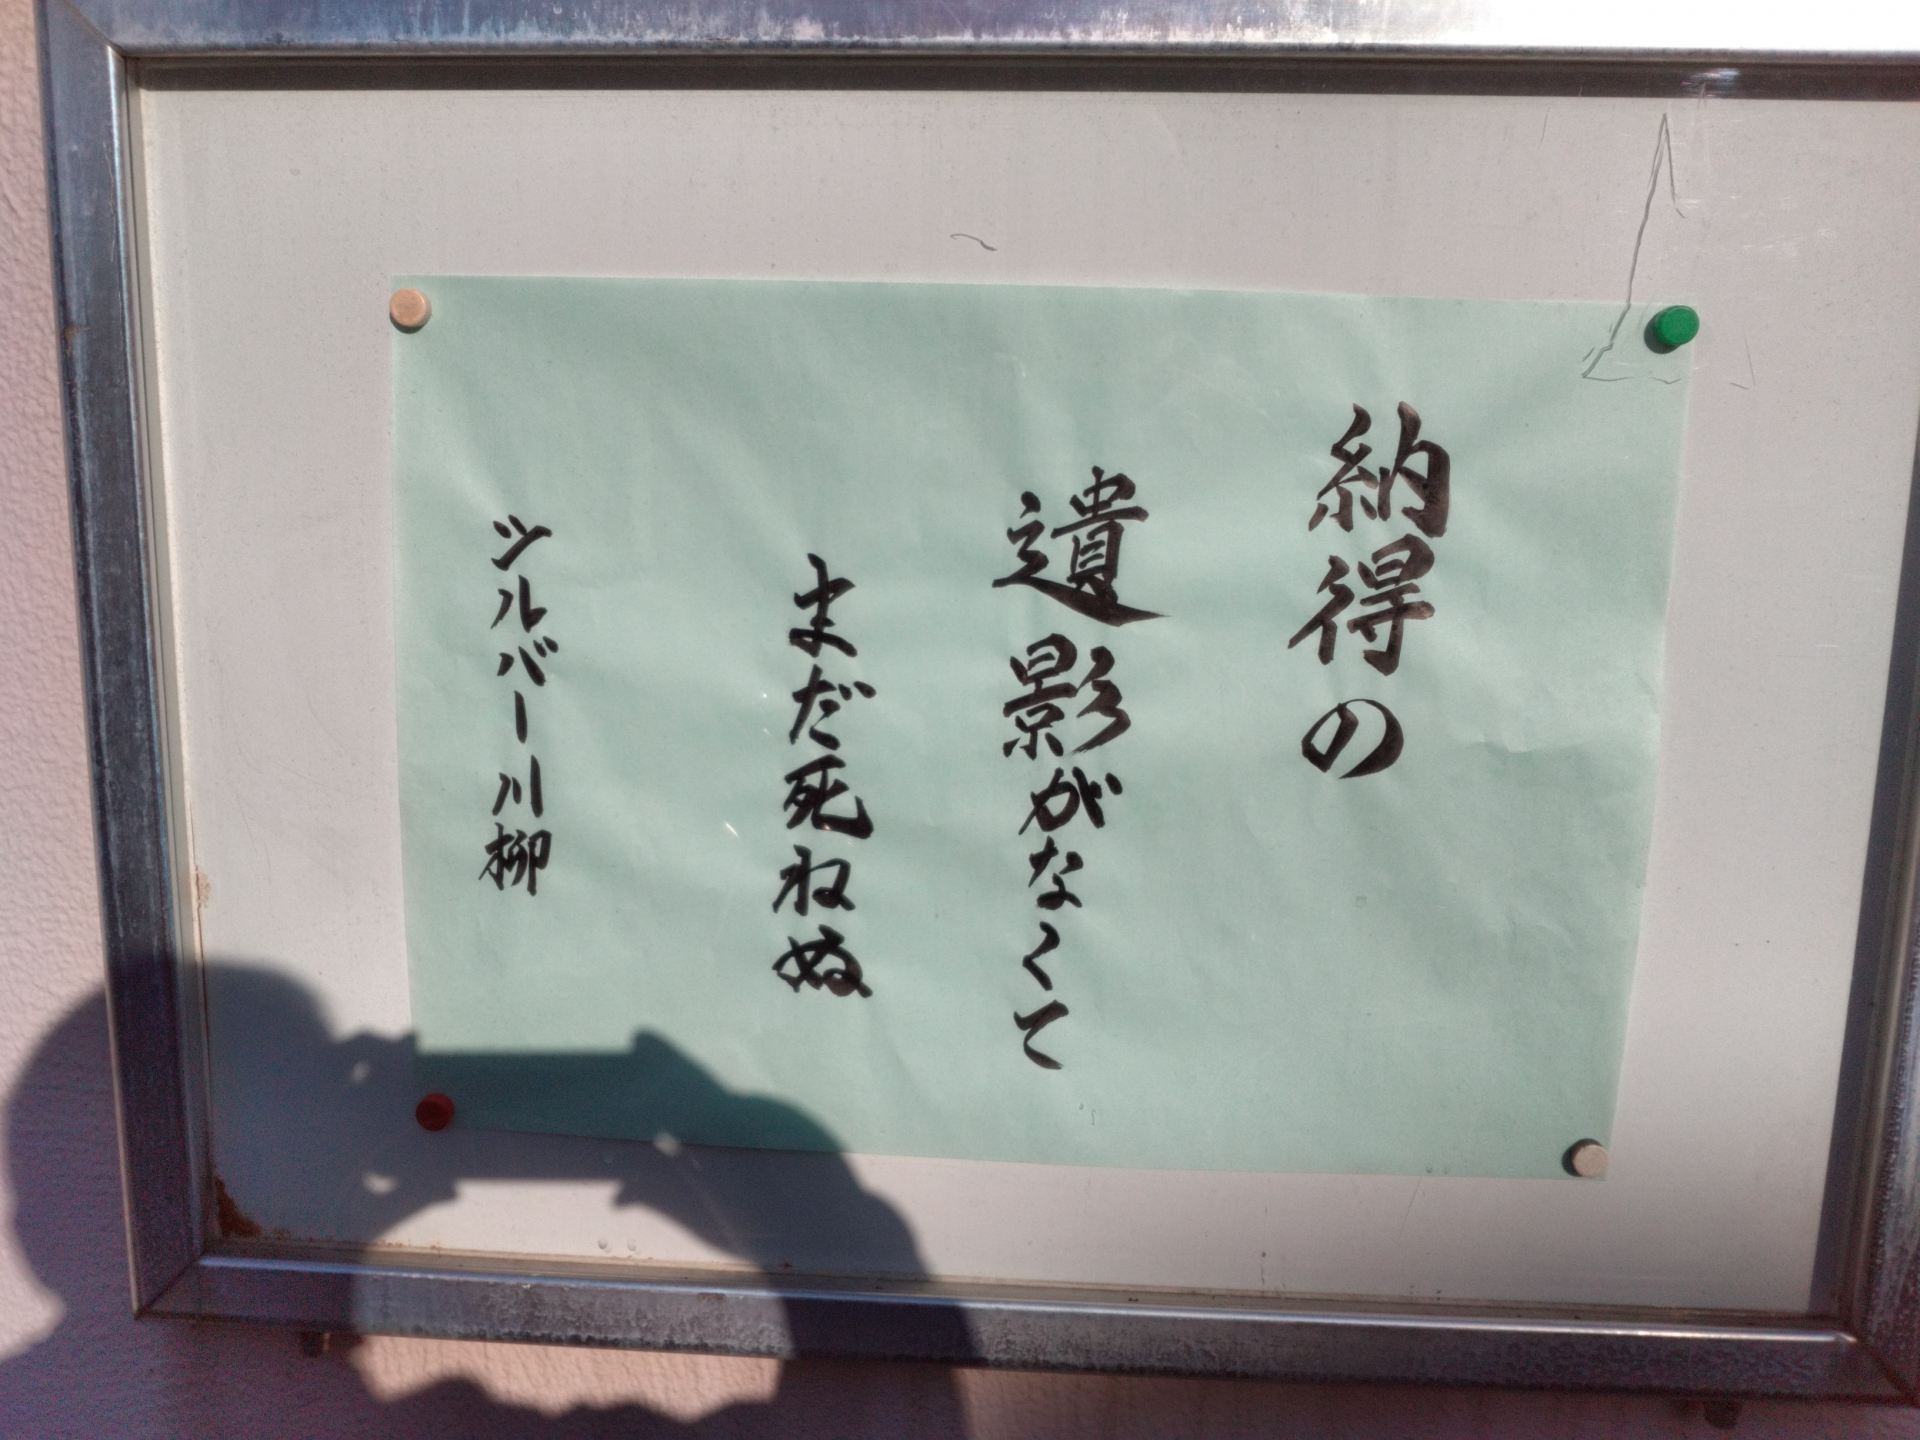 納得の
遺影がなくて
まだ死ねぬ
シルバー川柳